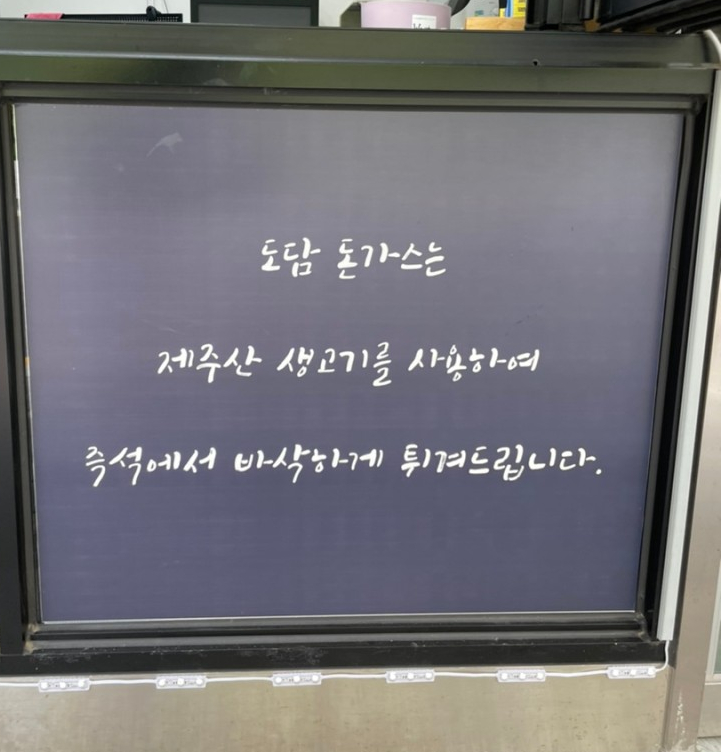 도담 돈가스는
제주산 생고기를 사용하여
즉석에서 바삭하게 튀겨드립니다.